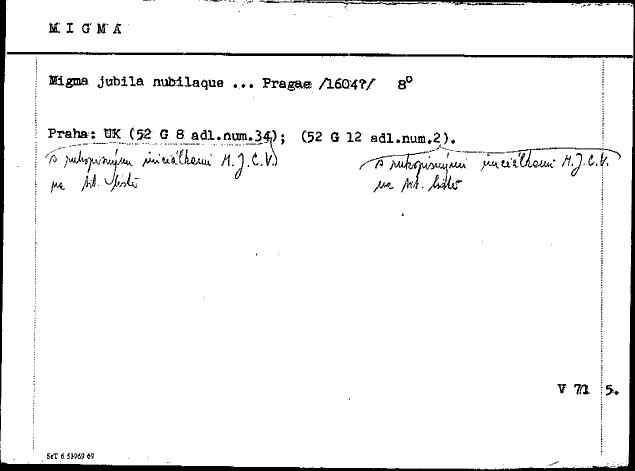 M I G M A
Migma jubila nubilaque ... Pragae /1604?/ 8°
Praha: UK (52 G 8 adl.num.34); (52 G 12 adl.num.2).
s rukopisnými iniciálkami M.J.C.V. s rukopisnými iniciálkami M.J.C.V.
na tit. listě na tit. listě
V 71 5.
SeT 6 53969 69